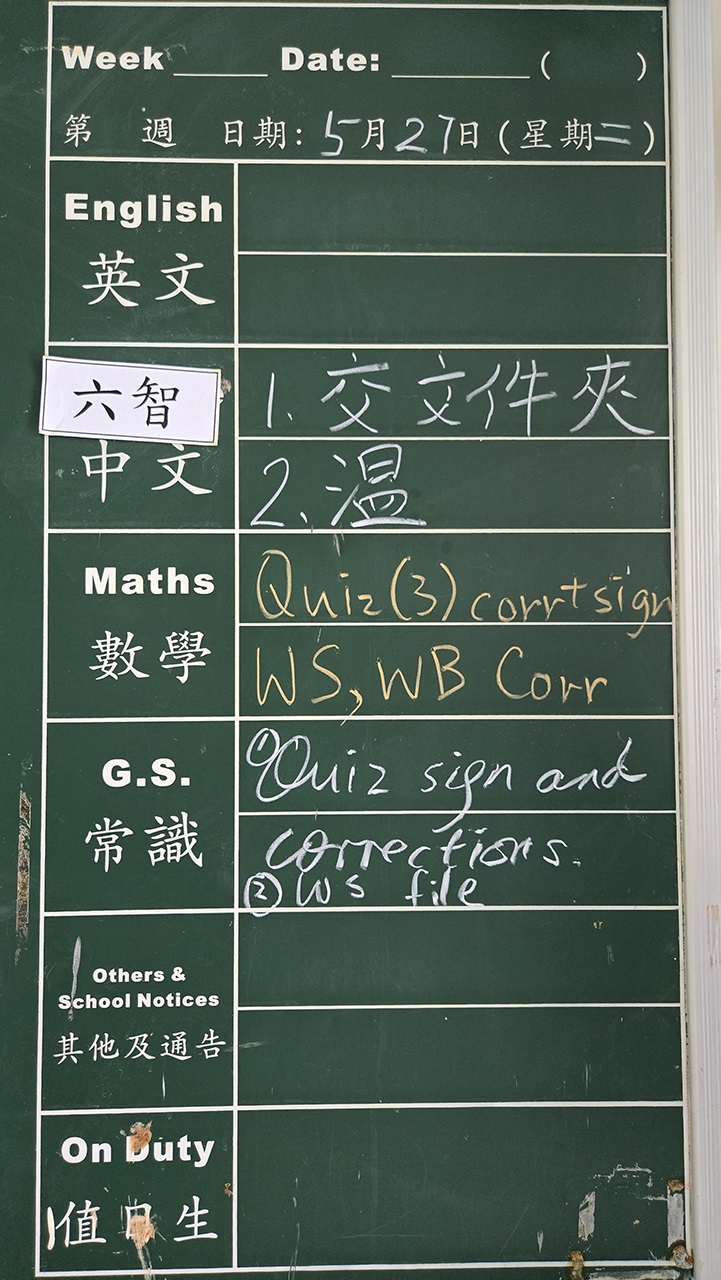 Week _____ Date: ________ ( )
第 週 日期: 5月27日 (星期二)
English
英文
六智
中文
1. 交文件夾
2. 温
Maths
數學
Quiz(3) corr+sign
WS, WB Corr
G.S.
常識
① Quiz sign and
corrections.
② WS file
Others &
School Notices
其他及通告
On Duty
值日生